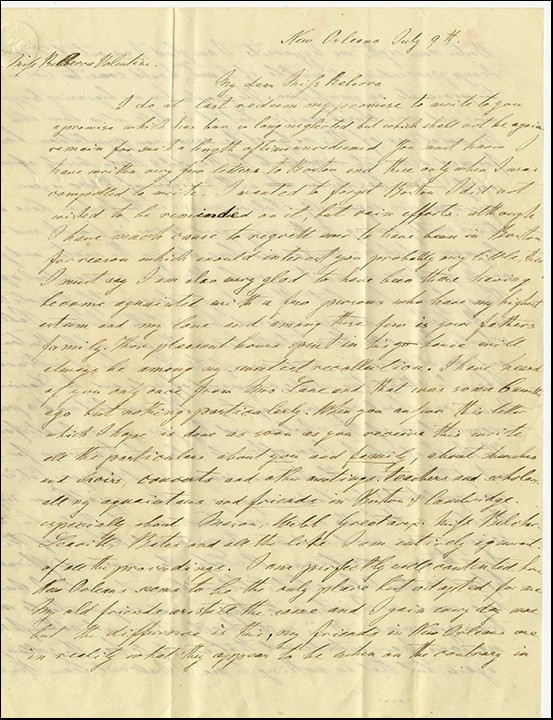 New Orleans July 9th.
Miss Rebecca Valentine.
My dear Miss Rebecca
I do at last redeem my promise to write to you
a promise which has been so long neglected but which shall not be again
remain for such a length of time unredeemed. You must know I
have written very few letters to Boston and these only when I was
compelled to write. I wanted to forget Boston I did not
wished to be reminded on it, but vain efforts. although
I have much cause to regrett ever to have been in Boston
for reason which would interest you probably very little,
I must say I am also very glad to have been there having
became aquainted with a few persons who have my highest
esteem and my love and among these few is your fathers
family. Those pleasant hours spent in his house will
always be among my sweetest recollection. I have heard
of you only once from Mrs Lane and that was some 6 months
ago but nothing particularly. When you answer this letter
which I hope is done as soon as you receive this write
all the particulars about you and family, about churches
and choirs, concerts and other meetings. teachers and scholars.
all my aquaintance and friends in Boston & Cambridge.
especially about Mason, Webb, Greatorex. Miss Belcher.
and all the like I am entirely ignorant
of all the proceedings. I am perfectly well contented here
New Orleans seems to be the only place but adapted for me
My old friends are still the same and I gain every day more
but the difference is this, my friends in New Orleans are
in reality what they appear to be when on the contrary in